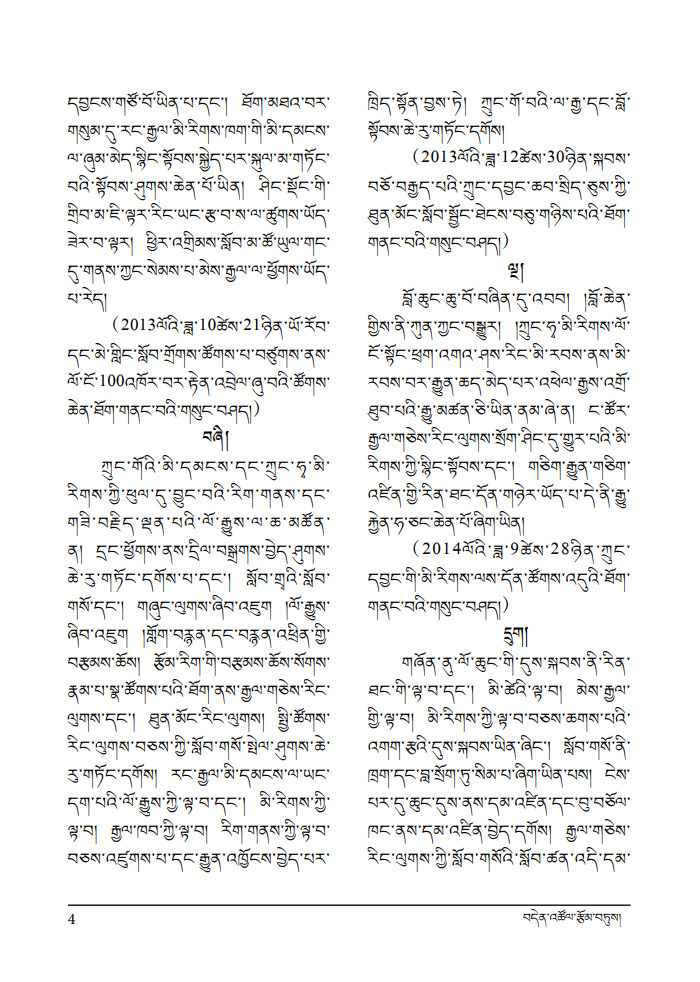 དབྱངས་གཙོ་བོ་ཡིན་པ་དང་། ཐོག་མཐའ་བར་
གསུམ་དུ་རང་རྒྱལ་མི་རིགས་ཁག་གི་མི་དམངས་
ལ་ཞུམ་མེད་སྙིང་སྟོབས་སྐྱེད་པར་སྐུལ་མ་གཏོང་
བའི་སྟོབས་ཤུགས་ཆེན་པོ་ཡིན། ཤིང་སྡོང་གི་
གྲིབ་མ་ཇི་ལྟར་རིང་ཡང་རྩ་བ་ས་ལ་ཚུགས་ཡོད་
ཟེར་བ་ལྟར། ཕྱིར་འགྲིམས་སློབ་མ་ཚོ་ཡུལ་གང་
དུ་གནས་ཀྱང་སེམས་པ་མེས་རྒྱལ་ལ་ཕྱོགས་ཡོད་
པ་རེད།
(2013ལོའི་ཟླ་10ཚེས་21ཉིན་ཡོ་རོབ་
དང་མེ་གླིང་སློབ་གྲོགས་ཚོགས་པ་བཙུགས་ནས་
ལོ་ངོ་100འཁོར་བར་རྟེན་འབྲེལ་ཞུ་བའི་ཚོགས་
ཆེན་ཐོག་གནང་བའི་གསུང་བཤད།)
བཞི།
ཀྲུང་གོའི་མི་དམངས་དང་ཀྲུང་ཧྭ་མི་
རིགས་ཀྱི་ཕུལ་དུ་བྱུང་བའི་རིག་གནས་དང་
གཟི་བརྗིད་ལྡན་པའི་ལོ་རྒྱུས་ལ་ཆ་མཚོན་
ན། དྲང་ཕྱོགས་ནས་དྲིལ་བསྒྲགས་བྱེད་ཤུགས་
ཆེ་རུ་གཏོང་དགོས་པ་དང་། སློབ་གྲྭའི་སློབ་
གསོ་དང་། གཞུང་ལུགས་ཞིབ་འཇུག །ལོ་རྒྱུས་
ཞིབ་འཇུག །གློག་བརྙན་དང་བརྙན་འཕྲིན་གྱི་
བརྩམས་ཆོས། རྩོམ་རིག་གི་བརྩམས་ཆོས་སོགས་
རྣམ་པ་སྣ་ཚོགས་པའི་ཐོག་ནས་རྒྱལ་གཅེས་རིང་
ལུགས་དང་། ཐུན་མོང་རིང་ལུགས། སྤྱི་ཚོགས་
རིང་ལུགས་བཅས་ཀྱི་སློབ་གསོ་སྤེལ་ཤུགས་ཆེ་
རུ་གཏོང་དགོས། རང་རྒྱལ་མི་དམངས་ལ་ཡང་
དག་པའི་ལོ་རྒྱུས་ཀྱི་ལྟ་བ་དང་། མི་རིགས་ཀྱི་
ལྟ་བ། རྒྱལ་ཁབ་ཀྱི་ལྟ་བ། རིག་གནས་ཀྱི་ལྟ་བ་
བཅས་འཛུགས་པ་དང་རྒྱུན་འཁྱོངས་བྱེད་པར་
ཁྲིད་སྟོན་བྱས་ཏེ། ཀྲུང་གོ་བའི་ལ་རྒྱ་དང་བློ་
སྟོབས་ཆེ་རུ་གཏོང་དགོས།
(2013ལོའི་ཟླ་12ཚེས་30ཉིན་སྐབས་
བཅོ་བརྒྱད་པའི་ཀྲུང་དབྱང་ཆབ་སྲིད་ཅུས་ཀྱི་
ཐུན་མོང་སློབ་སྦྱོང་ཐེངས་བཅུ་གཉིས་པའི་ཐོག་
གནང་བའི་གསུང་བཤད།)
ལྔ།
བློ་ཆུང་ཆུ་བོ་བཞིན་དུ་འབབ། །བློ་ཆེན་
གྱིས་ནི་ཀུན་ཀྱང་བསྒྱུར། །ཀྲུང་ཧྭ་མི་རིགས་ལོ་
ངོ་སྟོང་ཕྲག་འགའ་ཤས་རིང་མི་རབས་ནས་མི་
རབས་བར་རྒྱུན་ཆད་མེད་པར་འཕེལ་རྒྱས་འགྲོ་
ཐུབ་པའི་རྒྱུ་མཚན་ཅི་ཡིན་ནམ་ཞེ་ན། ང་ཚོར་
རྒྱལ་གཅེས་རིང་ལུགས་སྲོག་ཤིང་དུ་གྱུར་པའི་མི་
རིགས་ཀྱི་སྙིང་སྟོབས་དང་། གཅིག་རྒྱུན་གཅིག་
འཛིན་གྱི་རིན་ཐང་དོན་གཉེར་ཡོད་པ་དེ་ནི་རྒྱུ་
རྐྱེན་ཧ་ཅང་ཆེན་པོ་ཞིག་ཡིན།
(2014ལོའི་ཟླ་9ཚེས་28ཉིན་ཀྲུང་
དབྱང་གི་མི་རིགས་ལས་དོན་ཚོགས་འདུའི་ཐོག་
གནང་བའི་གསུང་བཤད།)
དྲུག།
གཞོན་ནུ་ལོ་ཆུང་གི་དུས་སྐབས་ནི་རིན་
ཐང་གི་ལྟ་བ་དང་། མི་ཚེའི་ལྟ་བ། མེས་རྒྱལ་
གྱི་ལྟ་བ། མི་རིགས་ཀྱི་ལྟ་བ་བཅས་ཆགས་པའི་
འགག་རྩའི་དུས་སྐབས་ཡིན་ཞིང་། སློབ་གསོ་ནི་
ཁྲག་དང་བླ་སྲོག་ཏུ་སིམ་པ་ཞིག་ཡིན་པས། ངེས་
པར་དུ་ཆུང་དུས་ནས་དམ་འཛིན་དང་བུ་བཅོལ་
ཁང་ནས་དམ་འཛིན་བྱེད་དགོས། རྒྱལ་གཅེས་
རིང་ལུགས་ཀྱི་སློབ་གསོའི་སློབ་ཚན་འདི་དམ་
4
བདེན་འཚོལ་རྩོམ་བཏུས།